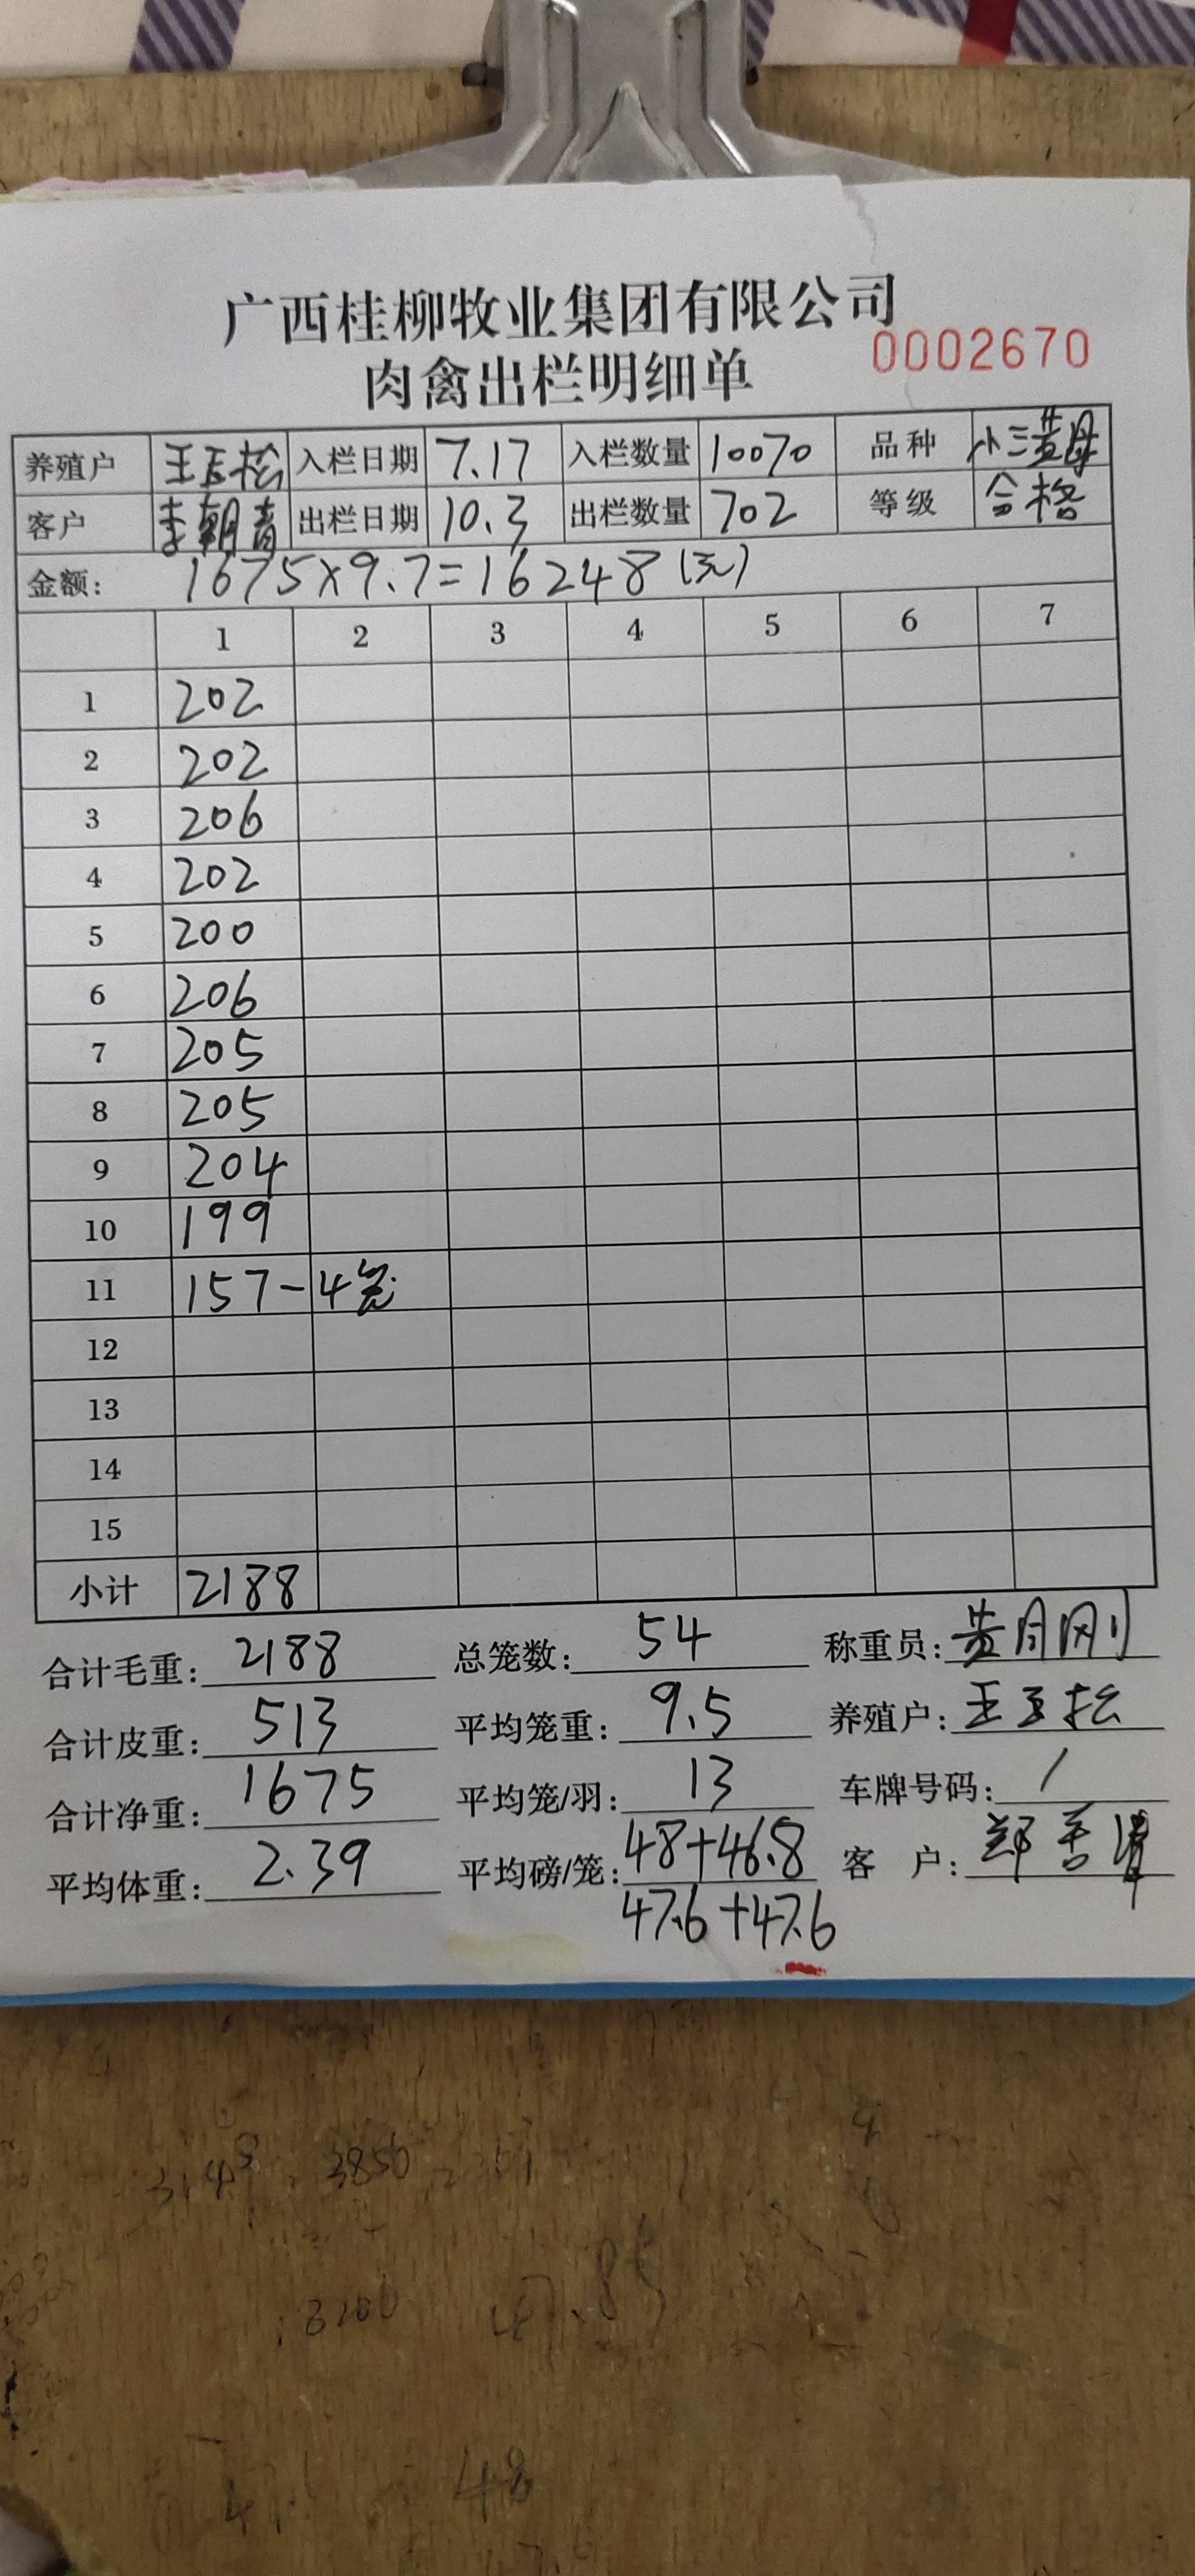 广西桂柳牧业集团有限公司
肉禽出栏明细单 0002670
养殖户 王玉松 入栏日期 7.17 入栏数量 10070 品种 小三黄母
客户 李朝青 出栏日期 10.3 出栏数量 702 等级 合格
金额: 1675×9.7=16248(元)
1 2 3 4 5 6 7
1 202
2 202
3 206
4 202
5 200
6 206
7 205
8 205
9 204
10 199
11 157-4笼
12
13
14
15
小计 2188
合计毛重: 2188 总笼数: 54 称重员:
合计皮重: 513 平均笼重: 9.5 养殖户: 王玉松
合计净重: 1675 平均笼/羽: 13 车牌号码: /
平均体重: 2.39 平均磅/笼: 48+46.8 客 户:
47.6+47.6
3850
3200
48